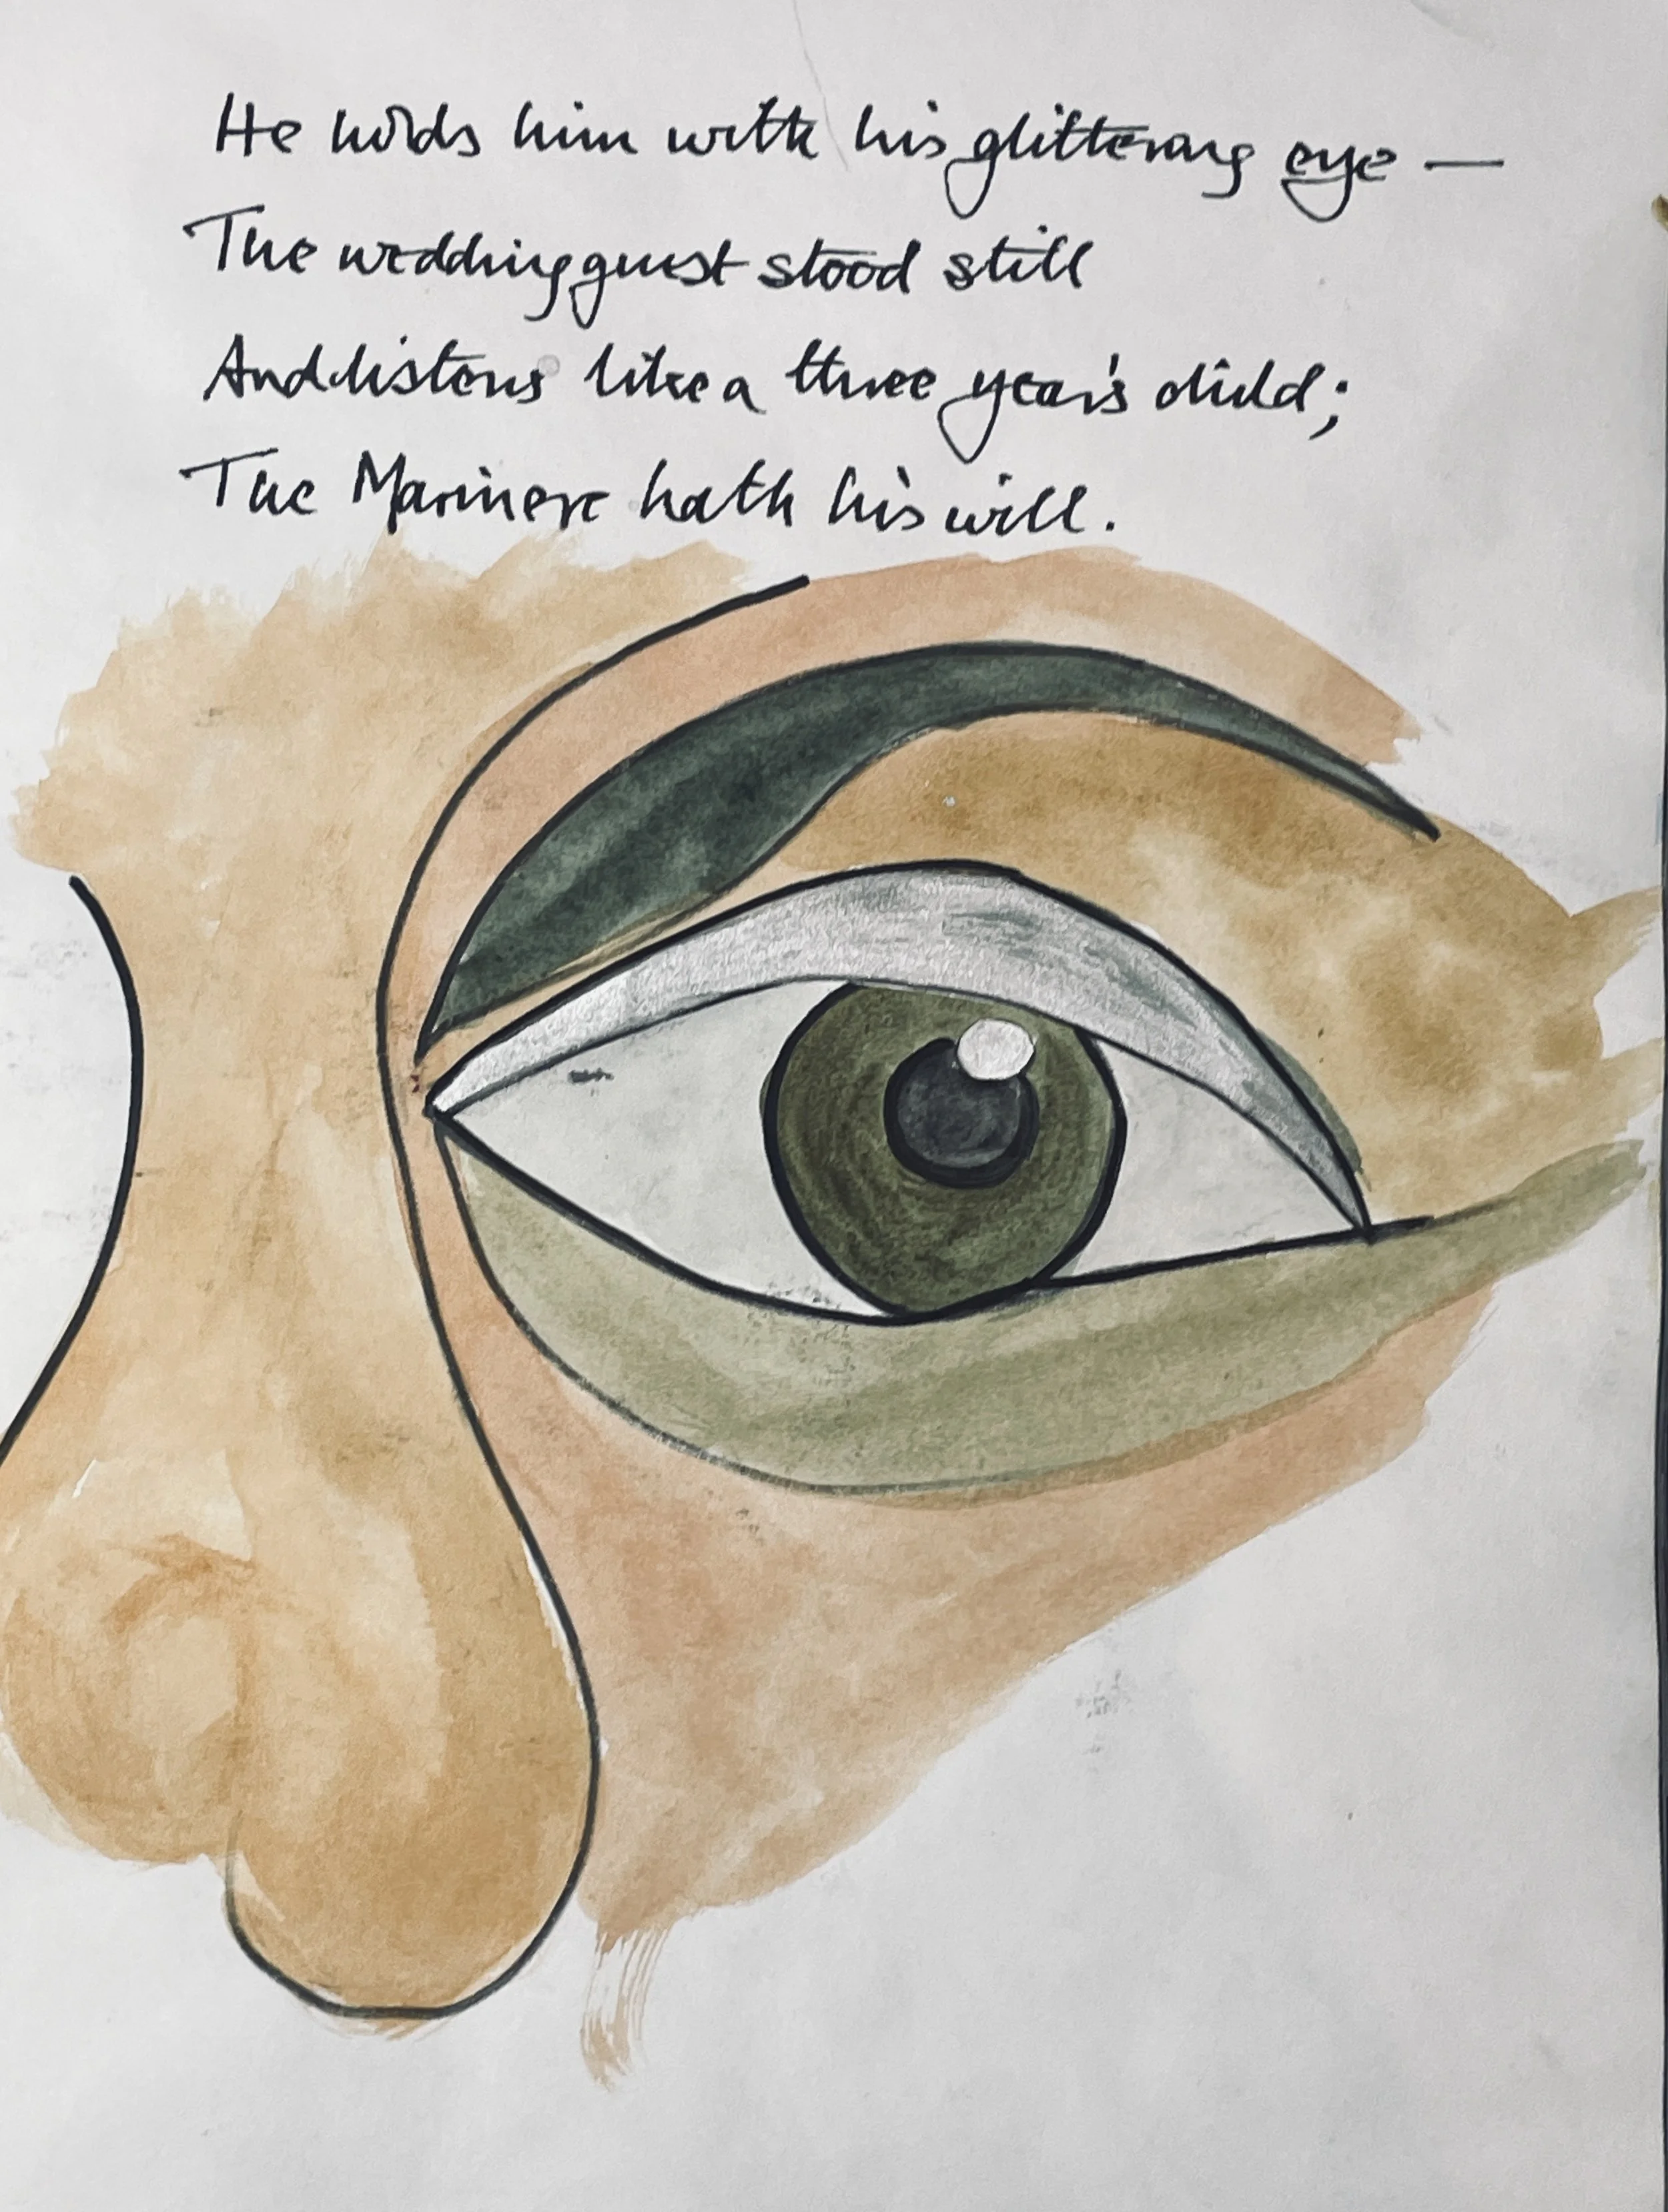 He holds him with his glittering eye —
The wedding guest stood still
And listens like a three year's child;
The Marinere hath his will.